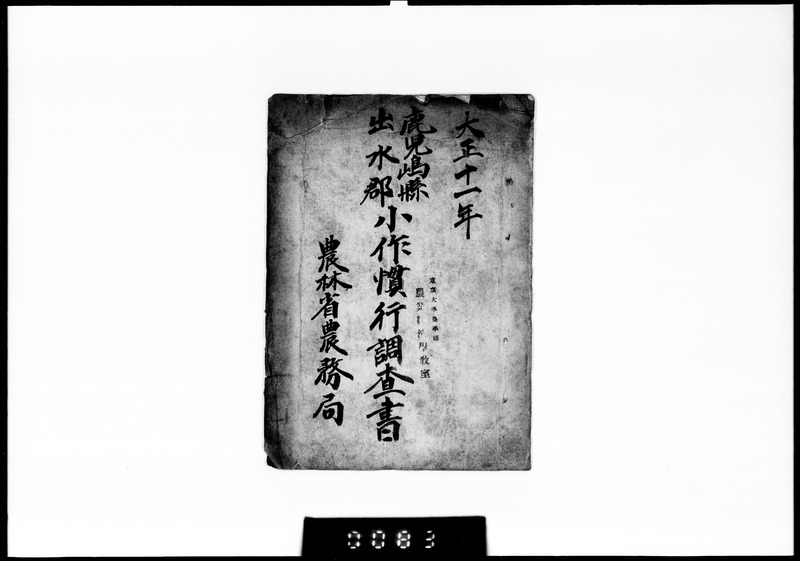 大正十一年
鹿児嶋縣
出水郡
小作慣行調査書
農林省農務局
東京大学農学部
教室
0083